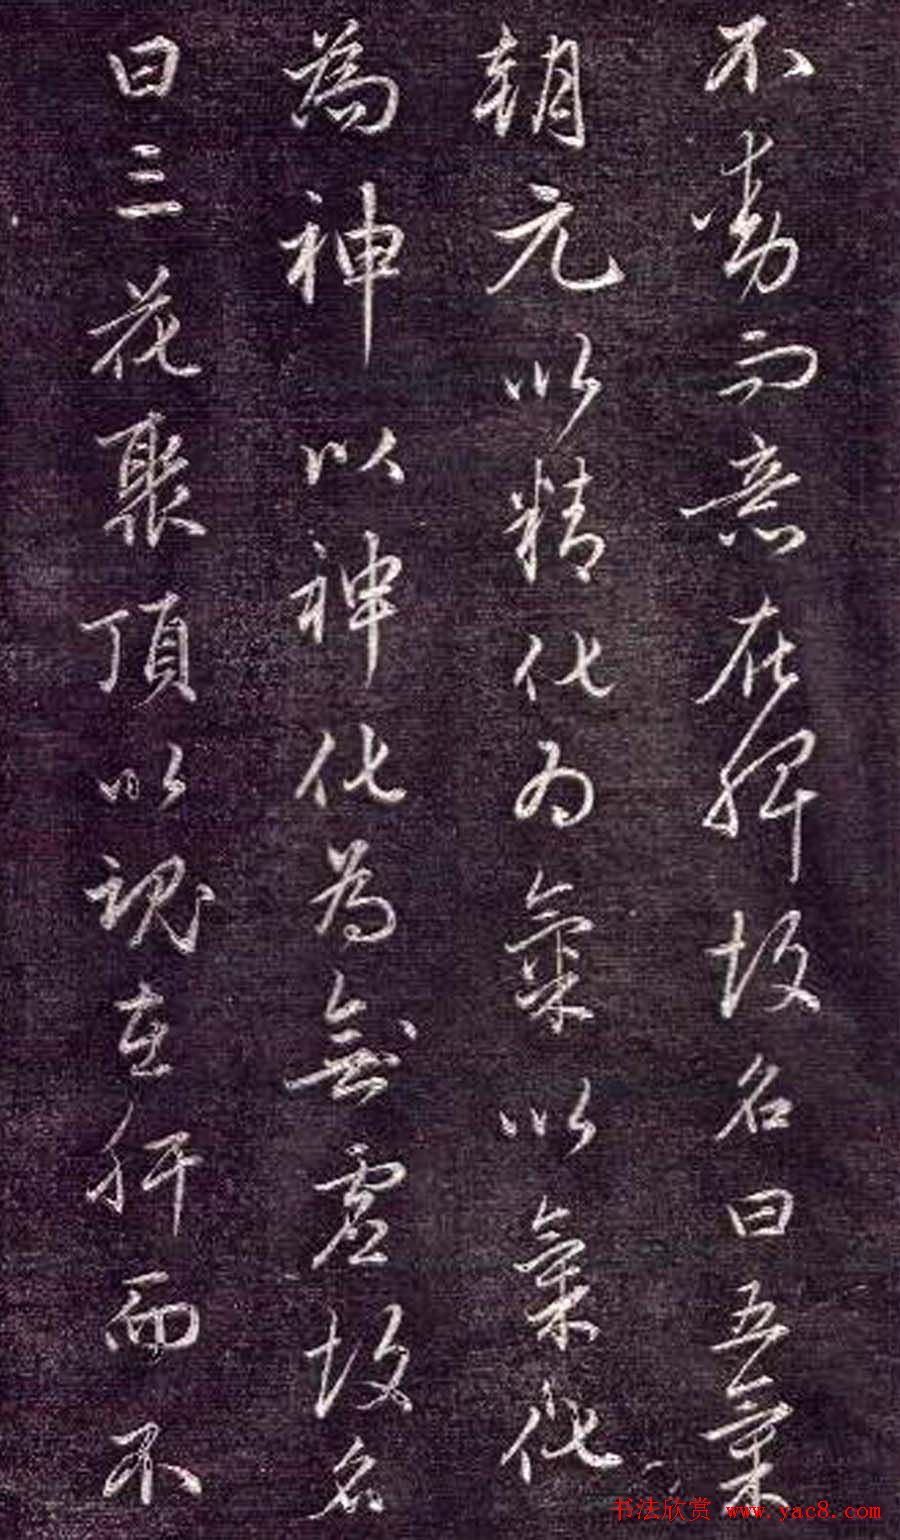 不動而意在脾故名曰五氣
朝元以精化為氣以氣化
為神以神化為無虛故名
曰三花聚頂以魂在肝而不
书法欣赏 www.yac8.com